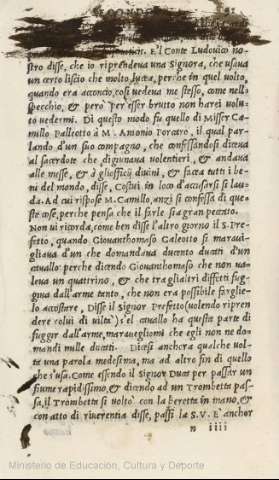 E'l Conte Ludovico no-
stro disse, che io riprendeva una Signora, che usava
un certo liscio che molto luceva, perche in quel volto,
quando era acconcio, cosi vedeva me stesso, come nello
specchio, & però per esser brutto non harei volu-
to vedermi. Di questo modo fu quello di Messer Ca-
millo Palleotto à M. Antonio Porcaro, il qual par-
lando d'un suo compagno, che confessandosi diceva
al sacerdote che digiunava volentieri, & andava
alle messe, & à gli officii divini, & facea tutti i be-
ni del mondo, disse, Costui in loco d'accusarsi si lau-
da. Ad cui rispose M. Camillo, anzi si confessa di que-
ste cose, perche pensa che il farle sia gran peccato.
Non vi ricorda, come ben disse l'altro giorno il S. Pre-
fetto, quando Giovanthomaso Galeotto si maravi-
gliava d'un che domandava ducento ducati d'un
cavallo: perche dicendo Giovanthomaso che non va-
leva un quattrino, & che tra gli altri diffetti fug-
giva dall'arme tanto, che non era possibile farglie-
lo accostare, Disse il Signor Prefetto (volendo ripren
dere colui di viltà) s'el cavallo ha questa parte di
fuggir dall'arme, maravegliomi che egli non ne do-
mandi mille ducati. Dicesi anchora qualche vol-
te una parola medesima, ma ad altro fin di quello
che s'usa. Come essendo il Signor Duca per passar un
fiume rapidissimo, & dicendo ad un Trombetta pas-
sa, il Trombetta si voltò con la beretta in mano, &
con atto di riverentia disse, passi la S.V. E' anchor
n iiii
Ministerio de Educación, Cultura y Deporte